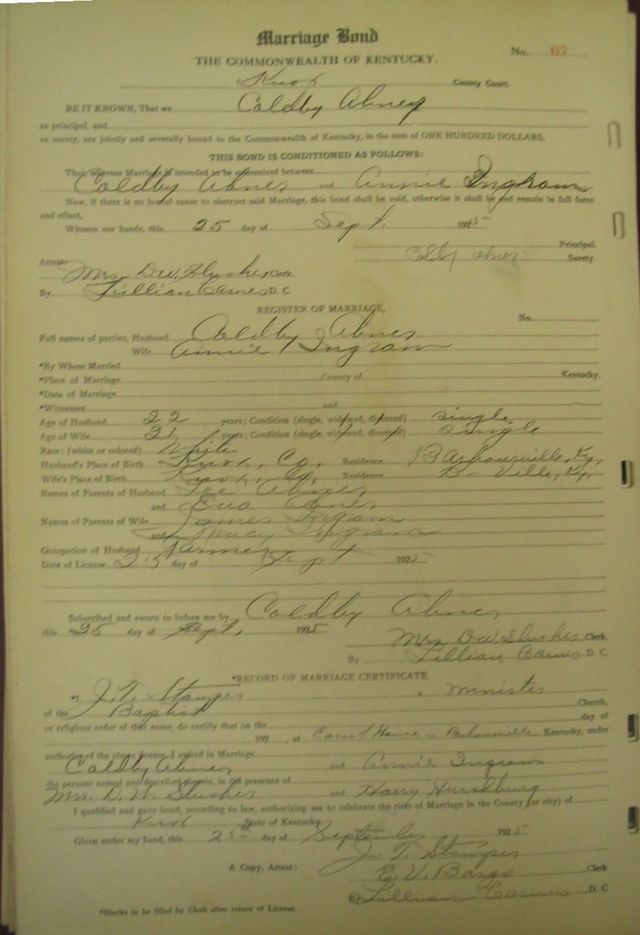 Marriage Bond
No. 67
THE COMMONWEALTH OF KENTUCKY.
Knox County Court.
BE IT KNOWN, That we Coldby Abney
as principal, and
as surety, are jointly and severally bound to the Commonwealth of Kentucky, in the sum of ONE HUNDRED DOLLARS.
THIS BOND IS CONDITIONED AS FOLLOWS:
That, whereas Marriage is intended to be solemnized between
Coldby Abner and Annie Ingram
Now, if there is no lawful cause to obstruct said Marriage, this bond shall be void, otherwise it shall be and remain in full force
and effect.
Witness our hands, this 25 day of Sept. 1925
Principal.
Colby abner Surety.
Attest:
Mrs. D.W. Slusher Clerk
By Lillian Carnes D. C
REGISTER OF MARRIAGE,
No.
Full names of parties, Husband Coldby Abner
Wife Annie Ingram
*By Whom Married
*Place of Marriage County of Kentucky.
*Date of Marriage
*Witnesses and
Age of Husband 22 years; Condition (single, widowed, divorced) single
Age of Wife 21 years; Condition (single, widowed, divorced) single
Race: (white or colored) White
Husband's Place of Birth Knox, Co, Residence Barbourville, Ky,
Wife's Place of Birth Knox, Co, Residence B- Ville, Ky.
Names of Parents of Husband Abner
and Eva Abner
Names of Parents of Wife James Ingram
and Nancy Ingram
Occupation of Husband Farmer
Date of License 25 day of Sept 1925
Subscribed and sworn to before me by Coldby Abner
this 25 day of Sept, 1925
Mrs. D W Slusher Clerk
By Lillian Carnes D. C
*RECORD OF MARRIAGE CERTIFICATE,
*I J. T. Stamper, Minister
of the Baptist Church,
or religious order of that name, do certify that on the day of
192 , at Court House in Barbourville Kentucky, under
authority of the above license, I united in Marriage
Coldby Abner, and Annie Ingram
the persons named and described therein, in the presence of
Mrs. D. W. Slusher and Harry
I qualified and gave bond, according to law, authorizing me to celebrate the rites of Marriage in the County (or city) of
Knox State of Kentucky
Given under my hand, this 25th day of September 1925
J. T. Stamper
A Copy, Attest: E. V. Bargo Clerk
By Lillian Carnes D. C
*Blanks to be filled by Clerk after return of License.